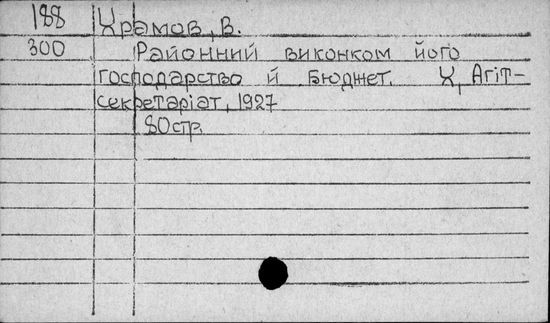 188 Храмов, В.
300 Районний виконком його
господарство й бюджет. Х, Агіт-
секретаріат, 1927
80стр.